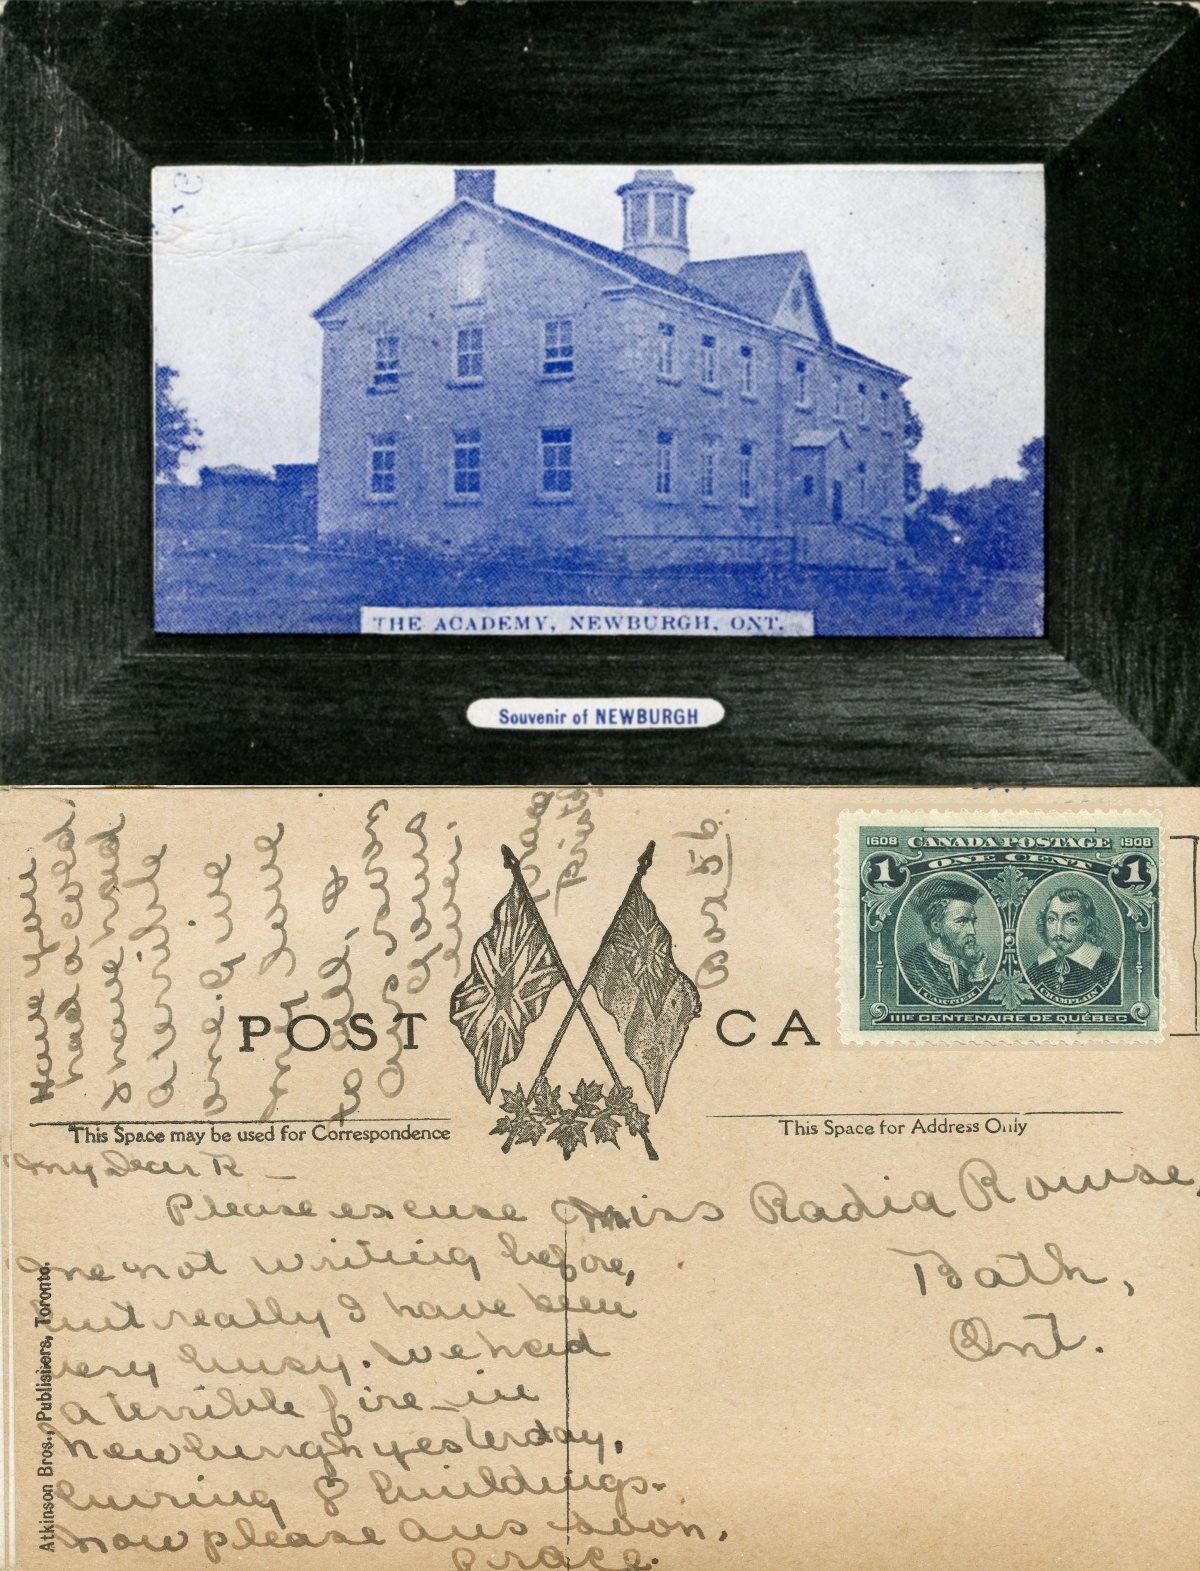 THE ACADEMY, NEWBURGH, ONT.
Souvenir of NEWBURGH
Have you
had a cold.
I have had
a terrible
one. Give
my love
to all, &
ans. soon
Yours
Grace
Box 56.
1608 CANADA POSTAGE 1908
1 ONE CENT 1
CARTIER CHAMPLAIN
IIIE CENTENAIRE DE QUÉBEC
POST CA
This Space may be used for Correspondence
This Space for Address Only
My Dear R —
Please excuse
me not writing before,
but really I have been
very busy. We had
a terrible fire in
Newburgh yesterday,
burning 8 buildings.
Now please ans soon.
Grace.
Miss Radia Rouse,
Bath,
Ont.
Atkinson Bros., Publishers, Toronto.